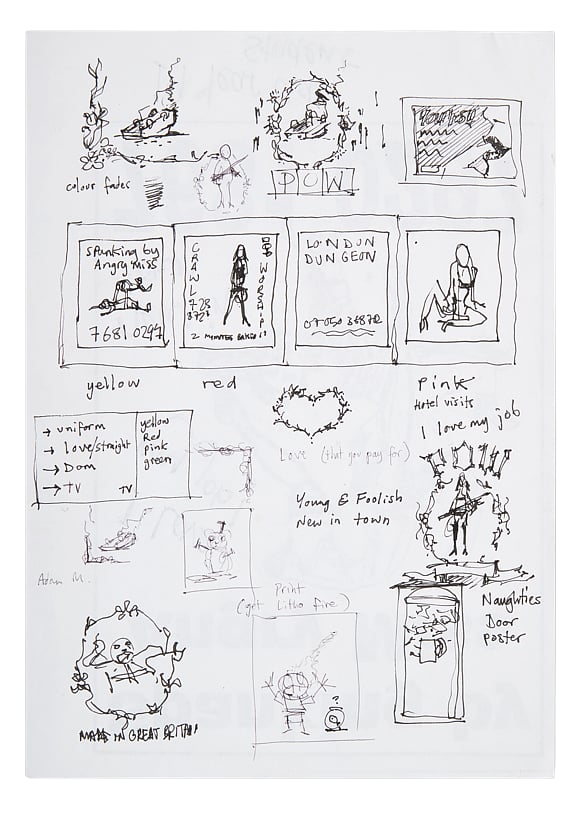 colour fades
POW
Spanking by
Angry Miss
7681 0297
CRAWL
WORSHIP
LONDON
DUNGEON
yellow
red
Pink
Hotel visits
I love my job
→ uniform
→ Love/straight
→ Dom
→ TV
TV
yellow
Red
pink
green
Love (that you pay for)
Young & Foolish
New in town
Adam M.
Print
(get Litho fire)
Naughties
Door
poster
MADE IN GREAT BRITAIN